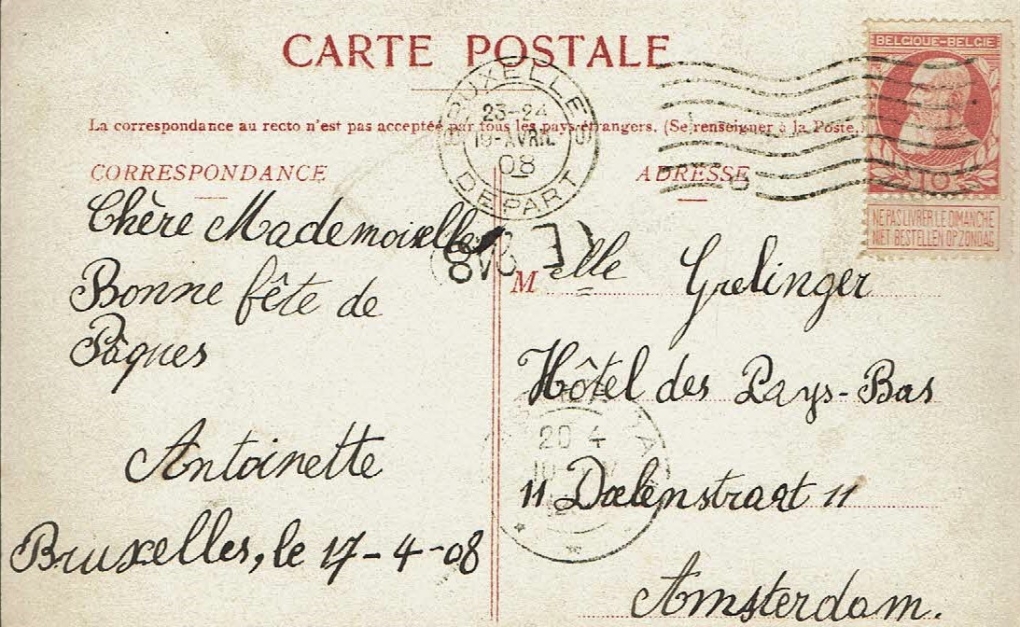 CARTE POSTALE
BELGIQUE-BELGIE
10
NE PAS LIVRER LE DIMANCHE
NIET BESTELLEN OP ZONDAG
BRUXELLES
23-24
19-AVRIL
08
DEPART
La correspondance au recto n'est pas acceptée par tous les pays étrangers. (Se renseigner à la Poste.)
CORRESPONDANCE
Chère Mademoiselle
Bonne fête de
Pâques
Antoinette
Bruxelles, le 17-4-08
ADRESSE
Melle Grelinger
Hôtel des Pays-Bas
11 Dœlenstraat 11
Amsterdam.
20 4
10